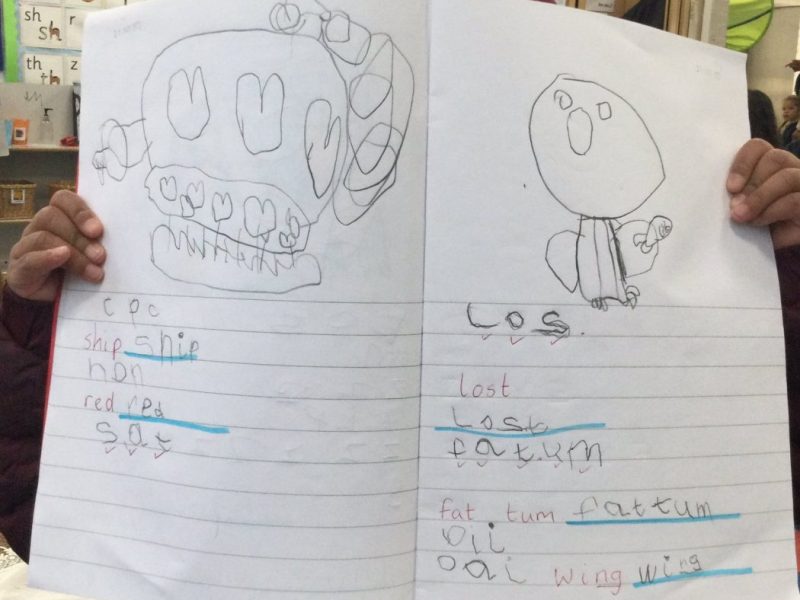 sh r
sh
th z
th
c p c
ship ship
non
red red
s a t
L o s.
lost
Lost
fatum
fat tum fattum
oil
oai wing wing